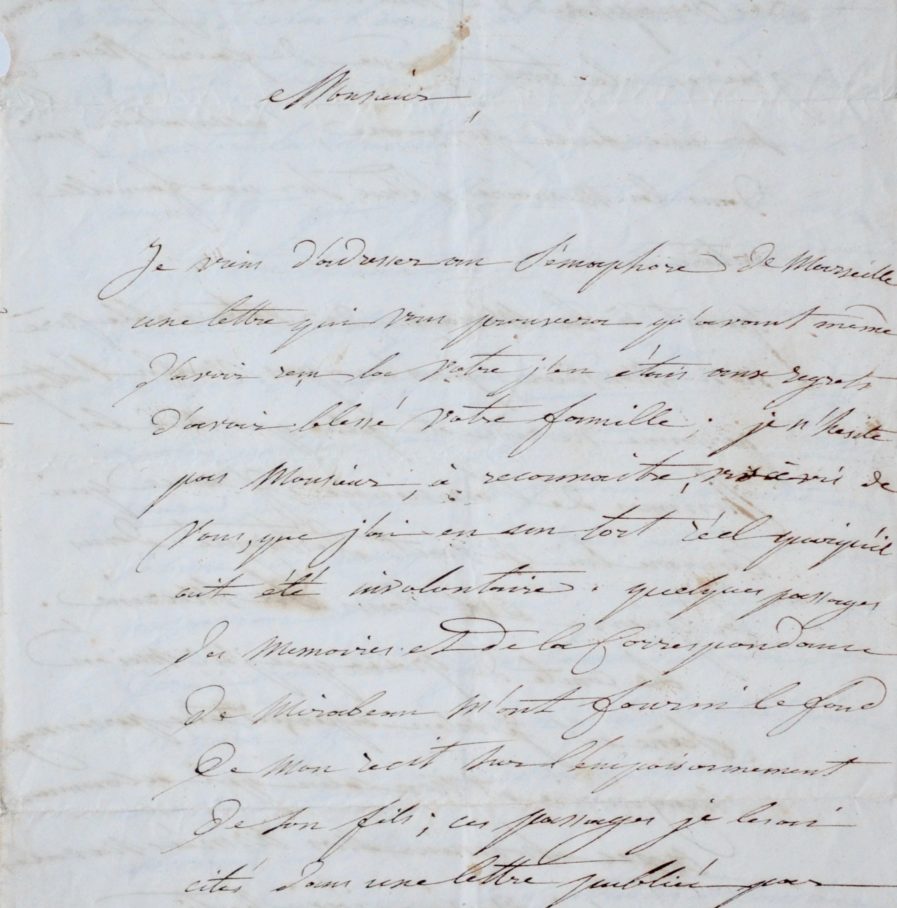 Monsieur,
Je viens d'adresser au Sémaphore de Marseille
une lettre qui vous prouvera qu'avant même
d'avoir reçu la votre j'en étais aux regrets
d'avoir blessé votre famille ; je n'hesite
pas Monsieur, à reconnaitre, vis à vis de
vous, que j'ai eu un tort réel quoiqu'il
ait été involontaire. quelques passages
des Memoires et de la Correspondance
de Mirabeau m'ont fourni le fond
de mon récit sur l'empoisonnement
de son fils ; ces passages je les ai
cités dans une lettre publiée par